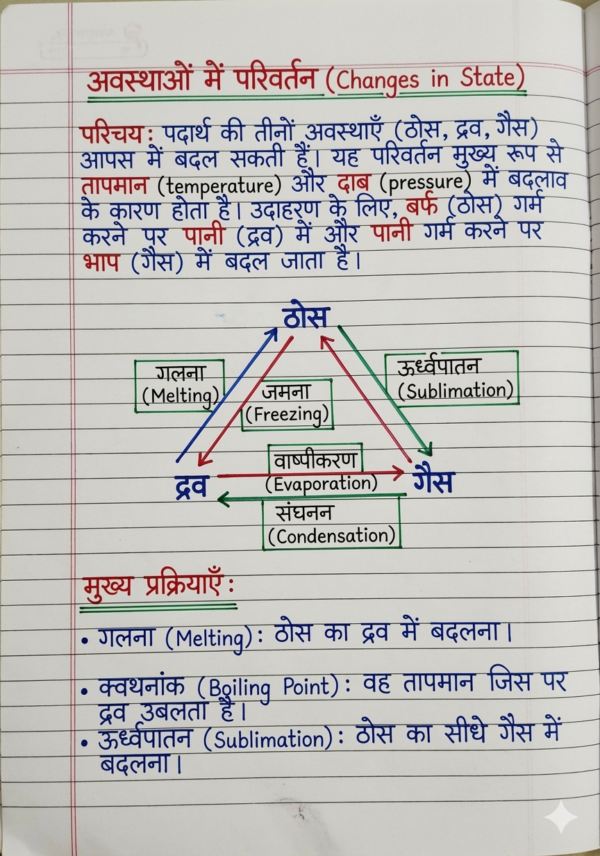 अवस्थाओं में परिवर्तन (Changes in State)
परिचय: पदार्थ की तीनों अवस्थाएँ (ठोस, द्रव, गैस)
आपस में बदल सकती हैं। यह परिवर्तन मुख्य रूप से
तापमान (temperature) और दाब (pressure) में बदलाव
के कारण होता है। उदाहरण के लिए, बर्फ (ठोस) गर्म
करने पर पानी (द्रव) में और पानी गर्म करने पर
भाप (गैस) में बदल जाता है।
ठोस
गलना
(Melting)
जमना
(Freezing)
ऊर्ध्वपातन
(Sublimation)
द्रव
वाष्पीकरण
(Evaporation)
गैस
संघनन
(Condensation)
मुख्य प्रक्रियाएँ:
• गलना (Melting): ठोस का द्रव में बदलना।
• क्वथनांक (Boiling Point): वह तापमान जिस पर
द्रव उबलता है।
• ऊर्ध्वपातन (Sublimation): ठोस का सीधे गैस में
बदलना।